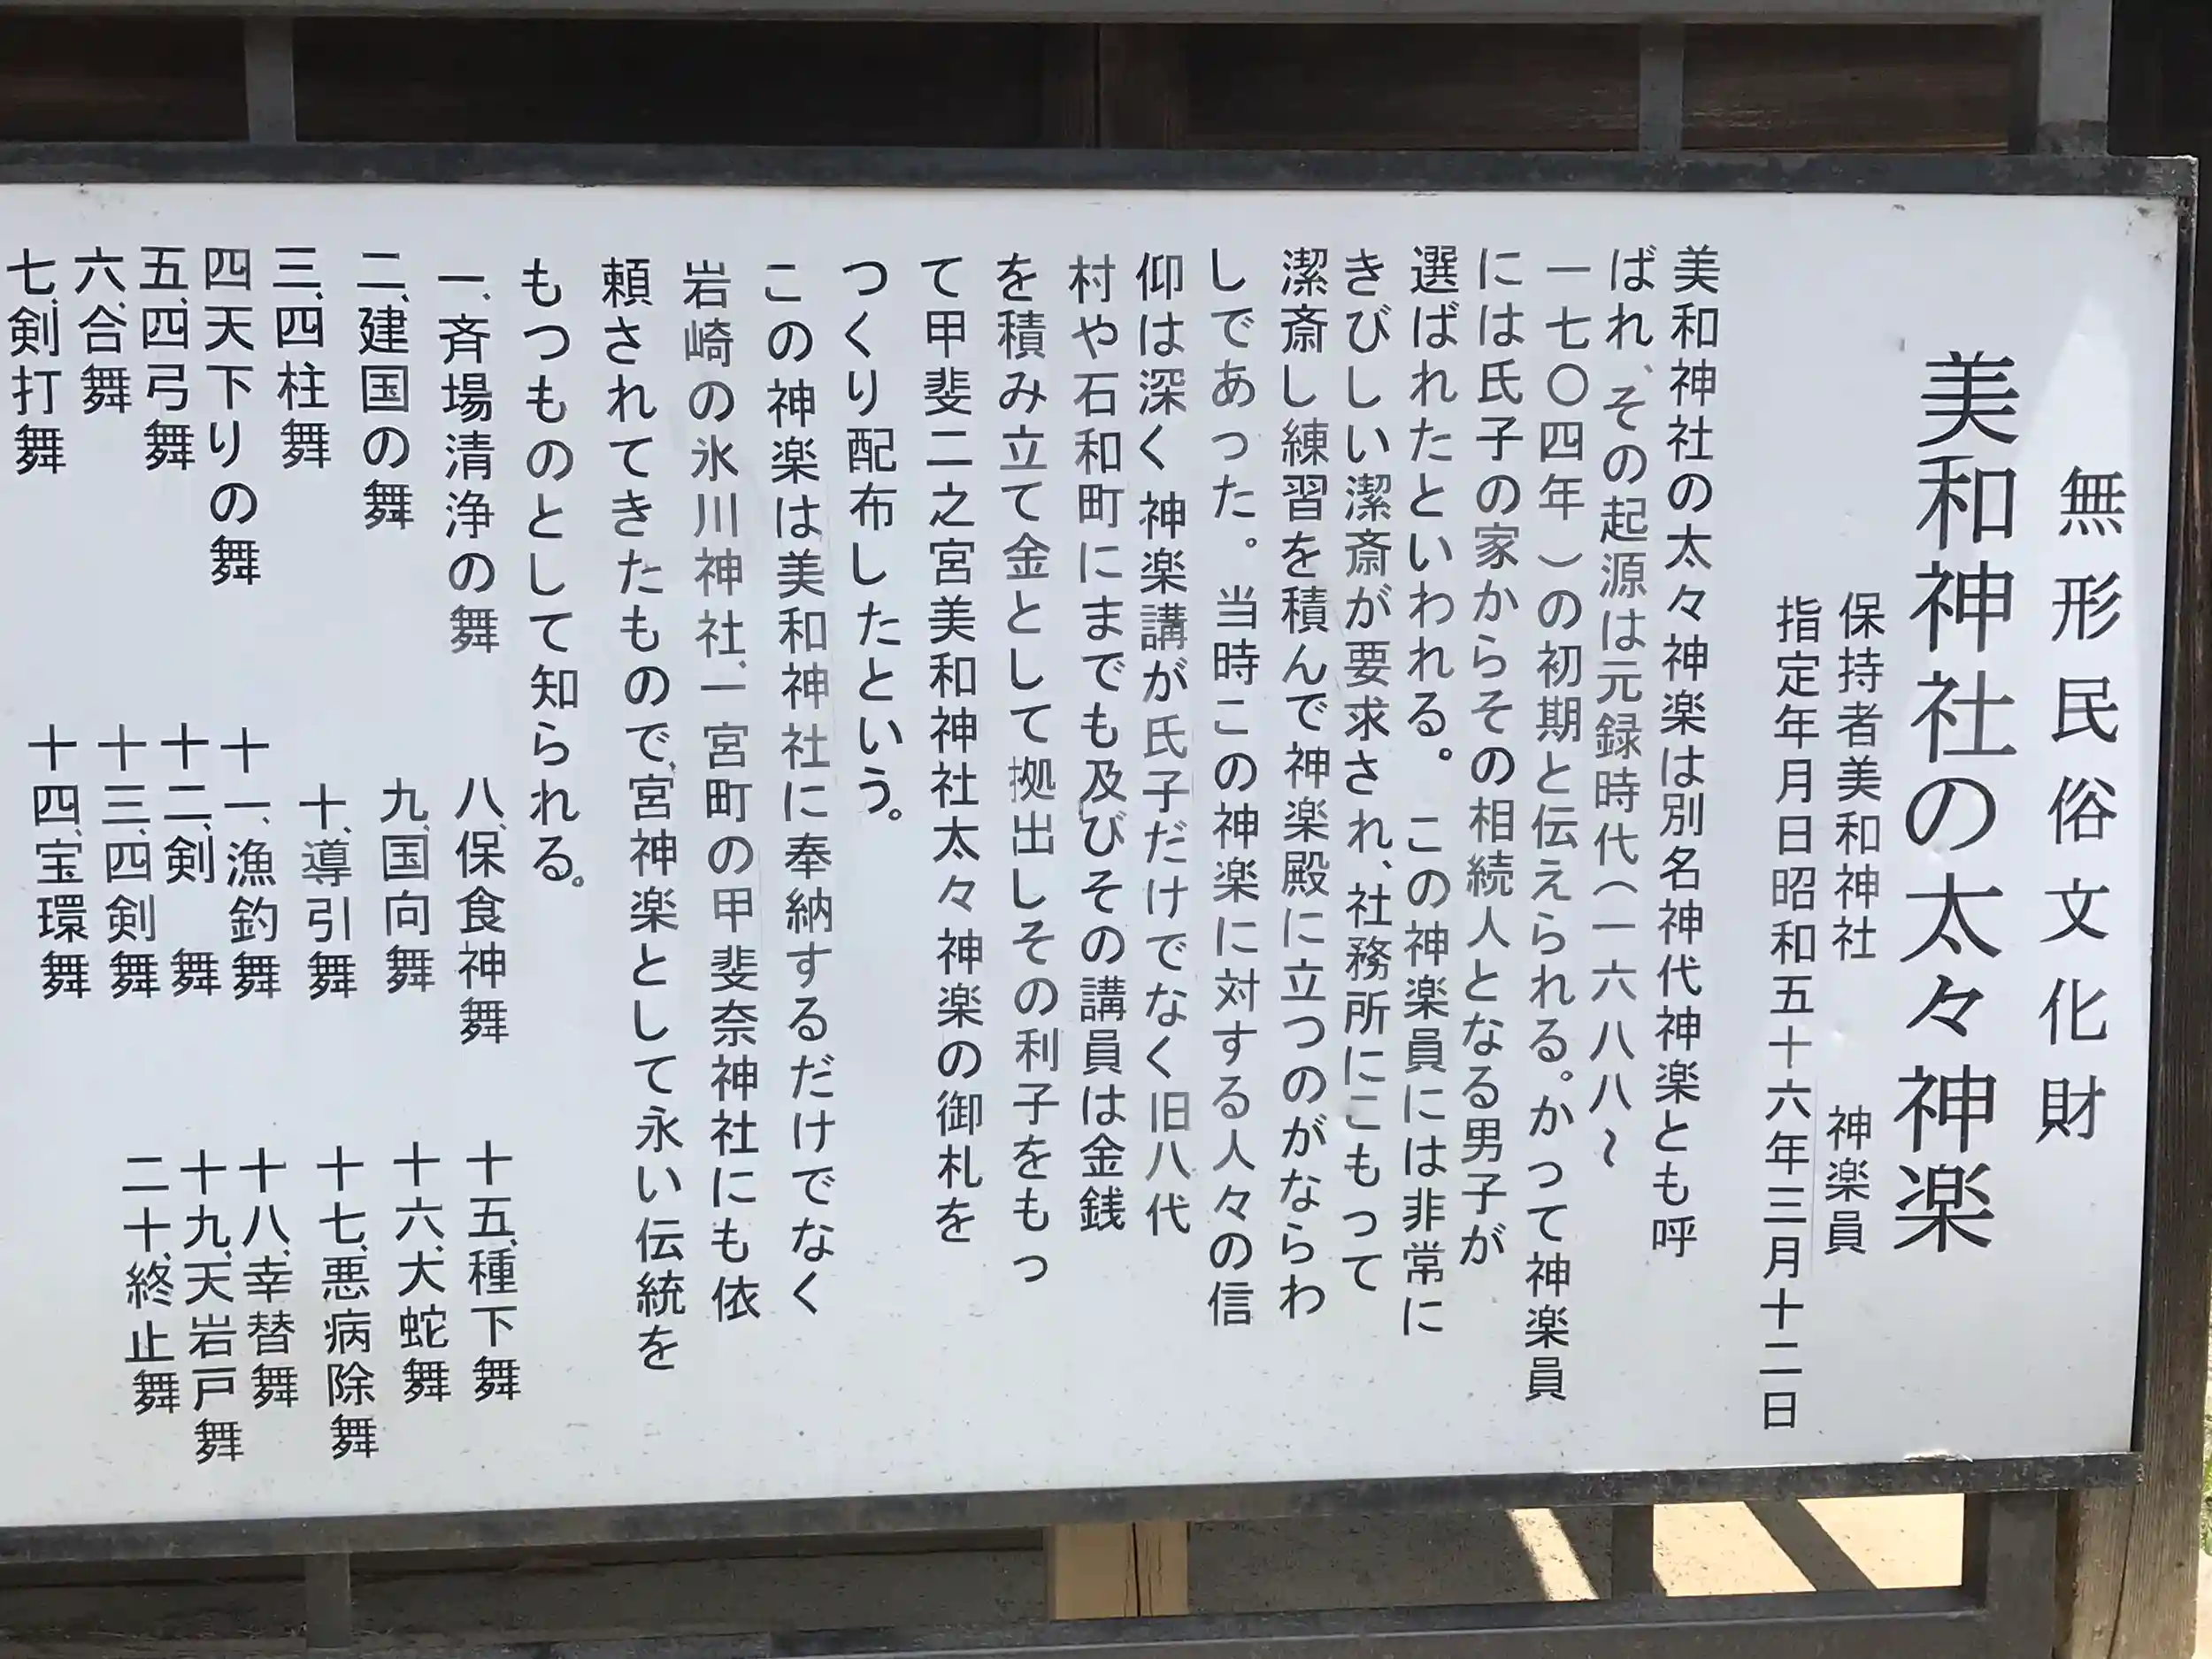 無形民俗文化財
美和神社の太々神楽
保持者美和神社　神楽員
指定年月日昭和五十六年三月十二日
美和神社の太々神楽は別名神代神楽とも呼
ばれ、その起源は元録時代（一六八八〜
一七〇四年）の初期と伝えられる。かって神楽員
には氏子の家からその相続人となる男子が
選ばれたといわれる。この神楽員には非常に
きびしい潔斎が要求され、社務所にこもって
潔斎し練習を積んで神楽殿に立つのがならわ
しであった。当時この神楽に対する人々の信
仰は深く神楽講が氏子だけでなく旧八代
村や石和町にまでも及びその講員は金銭
を積み立て金として拠出しその利子をもっ
て甲斐二之宮美和神社太々神楽の御札を
つくり配布したという。
この神楽は美和神社に奉納するだけでなく
岩崎の氷川神社、一宮町の甲斐奈神社にも依
頼されてきたもので、宮神楽として永い伝統を
もつものとして知られる。
一、斉場清浄の舞
二、建国の舞
三、四柱舞
四天下りの舞
五、四弓舞
六、合舞
七、剣打舞
八、保食神舞
九、国向舞
十、導引舞
十一、漁釣舞
十二、剣　舞
十三、四剣舞
十四、宝環舞
十五、種下舞
十六、大蛇舞
十七、悪病除舞
十八、幸替舞
十九、天岩戸舞
二十、終止舞